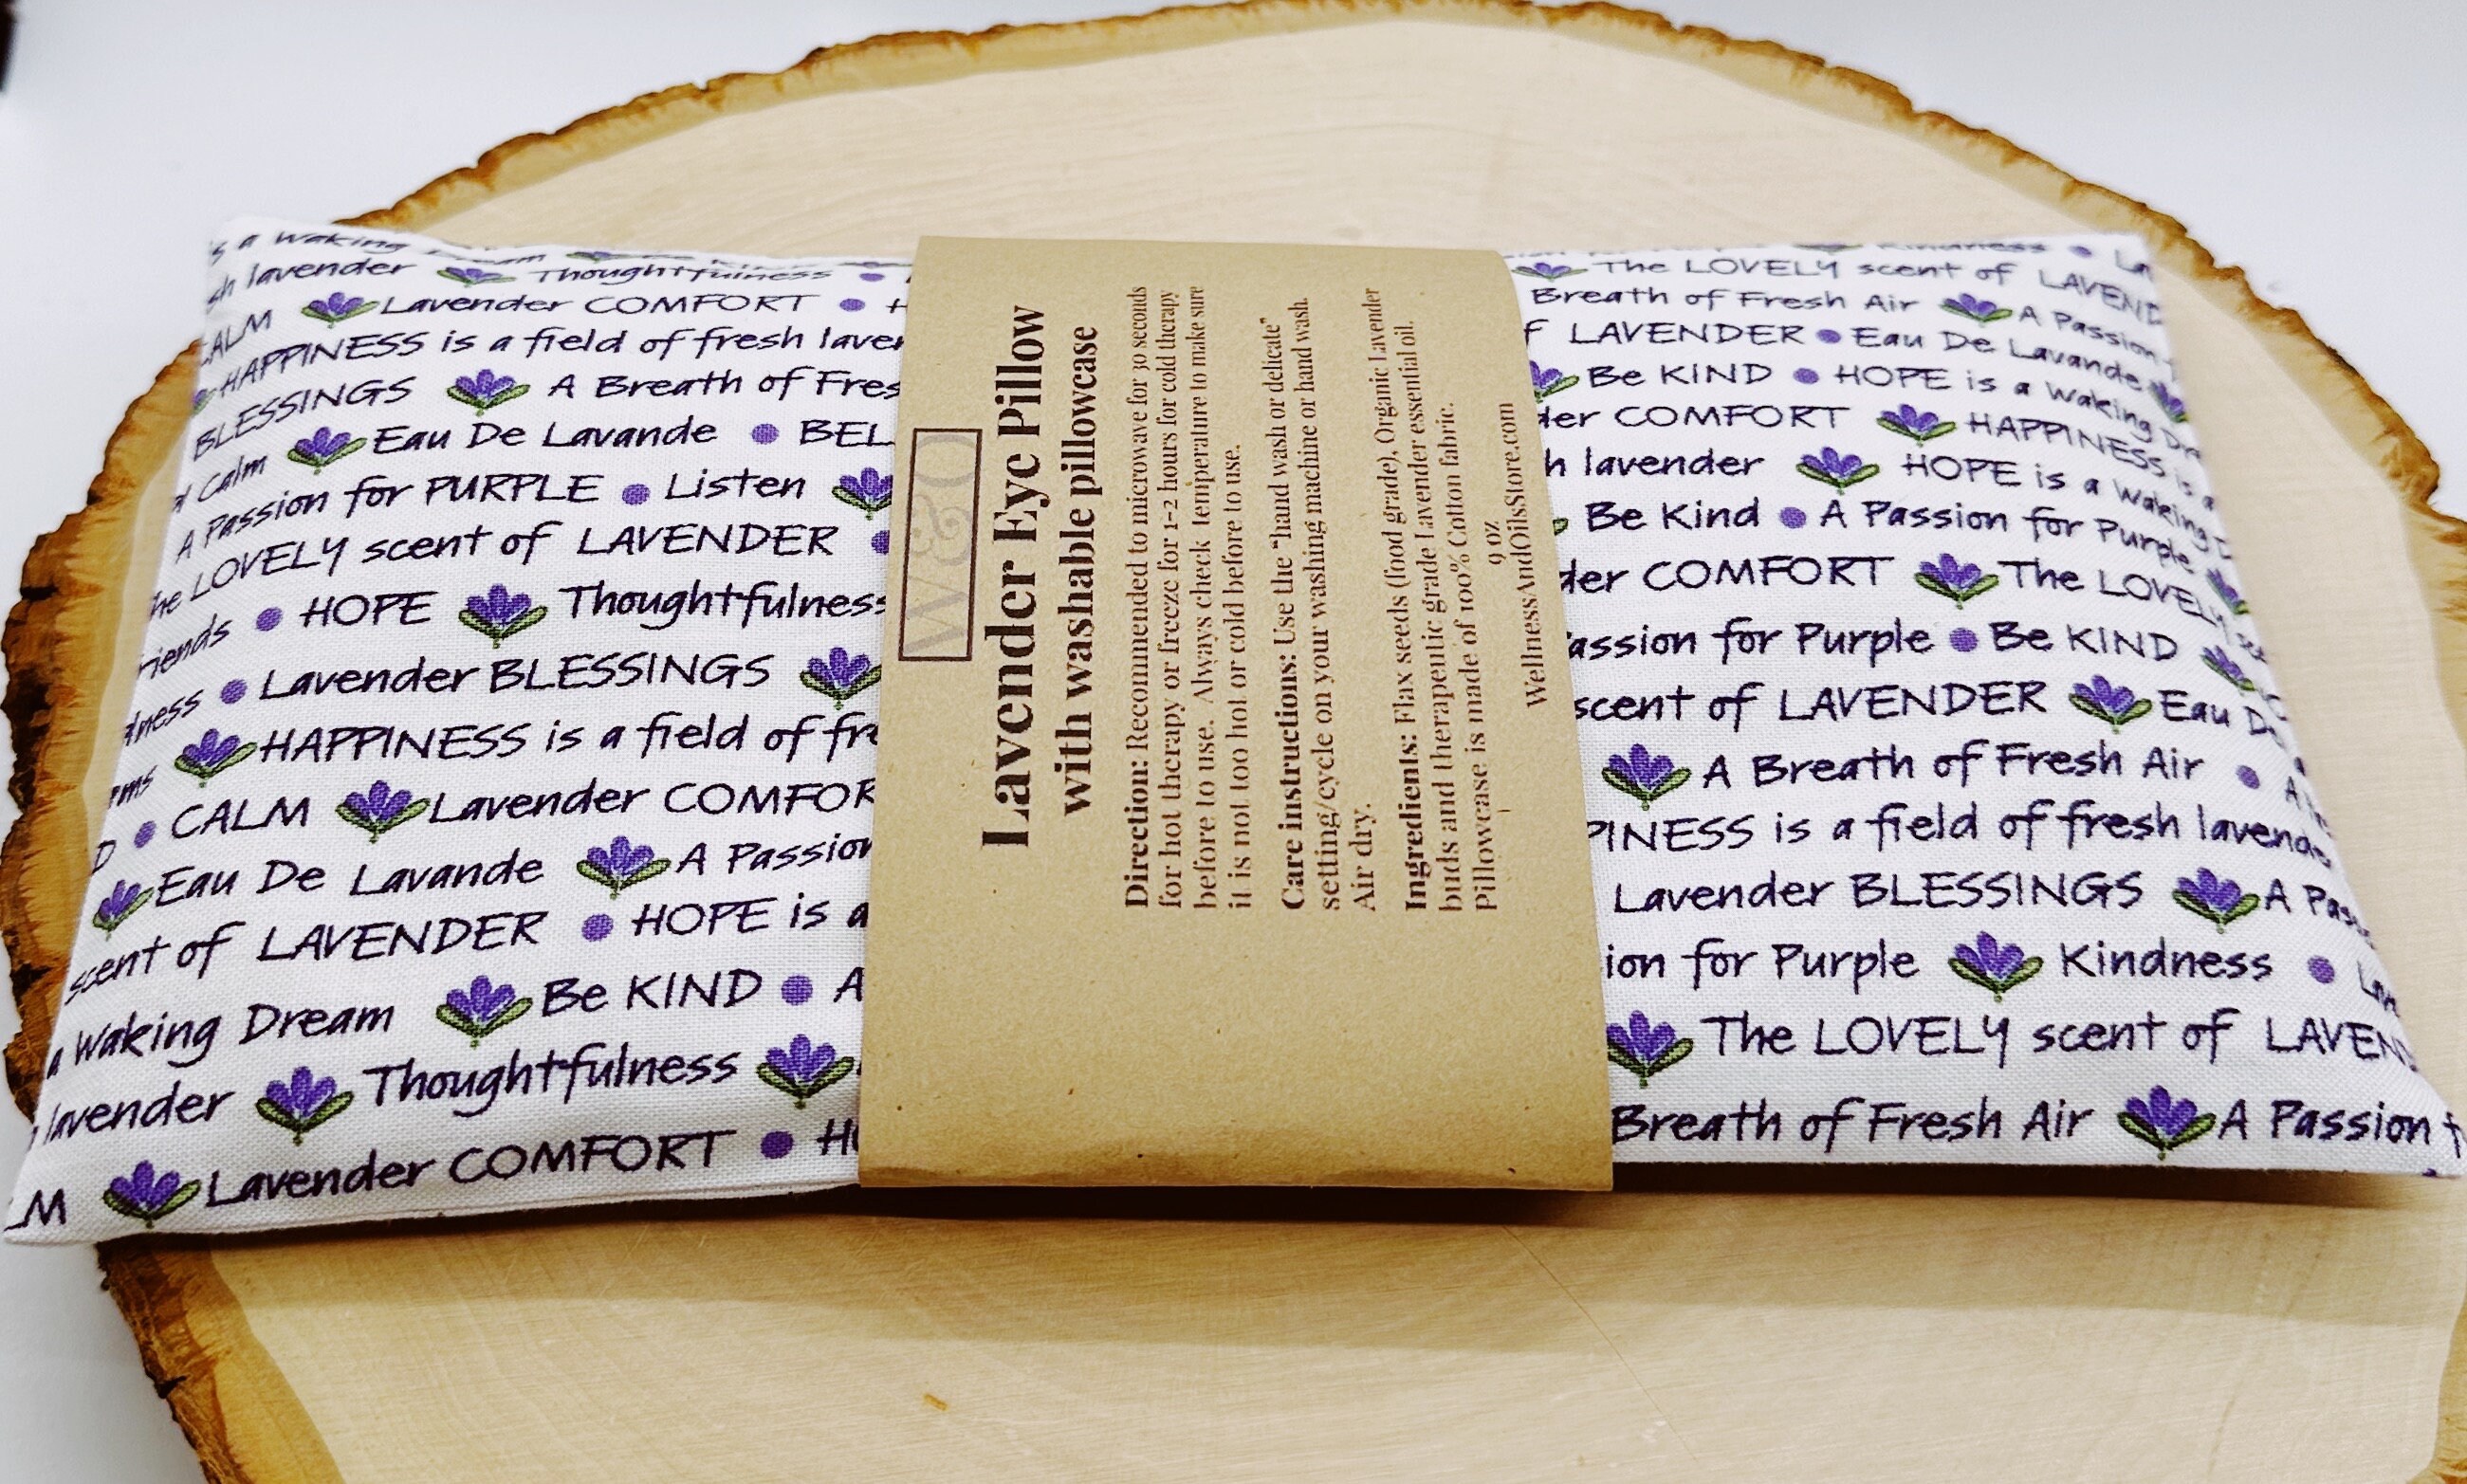 s a Waking Dream
sh lavender Thoughtfulness
CALM Lavender COMFORT H
HAPPINESS is a field of fresh laver
BLESSINGS A Breath of Fres
Calm Eau De Lavande BEL
A Passion for PURPLE Listen
The LOVELY scent of LAVENDER
riends HOPE Thoughtfulness
dness Lavender BLESSINGS
HAPPINESS is a field of fre
rms
D CALM Lavender COMFOR
Eau De Lavande A Passion
scent of LAVENDER HOPE is a
a Waking Dream Be KIND A
lavender Thoughtfulness
LM Lavender COMFORT HO
W&O
Lavender Eye Pillow
with washable pillowcase
Direction: Recommended to microwave for 30 seconds
for hot therapy or freeze for 1-2 hours for cold therapy
before to use. Always check temperature to make sure
it is not too hot or cold before to use.
Care instructions: Use the "hand wash or delicate"
setting/cycle on your washing machine or hand wash.
Air dry.
Ingredients: Flax seeds (food grade), Organic Lavender
buds and therapeutic grade Lavender essential oil.
Pillowcase is made of 100% Cotton fabric.
9 oz
WellnessAndOilsStore.com
Kindness La
The LOVELY scent of LAVEND
Breath of Fresh Air A Passion
f LAVENDER Eau De Lavande
Be KIND HOPE is a Waking Dre
der COMFORT HAPPINESS is a
h lavender HOPE is a Waking D
Be Kind A Passion for Purple
der COMFORT The LOVELY sce
assion for Purple Be KIND
scent of LAVENDER Eau De
A Breath of Fresh Air A
PINESS is a field of fresh lavende
Lavender BLESSINGS A Pass
ion for Purple Kindness Lave
The LOVELY scent of LAVEN
Breath of Fresh Air A Passion f